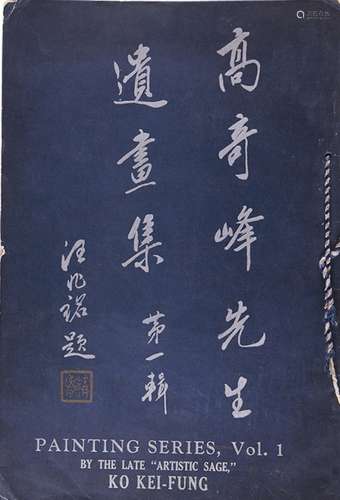 高奇峰先生
遺畫集
第一輯
汪兆銘題
PAINTING SERIES, Vol. 1
BY THE LATE "ARTISTIC SAGE,"
KO KEI-FUNG